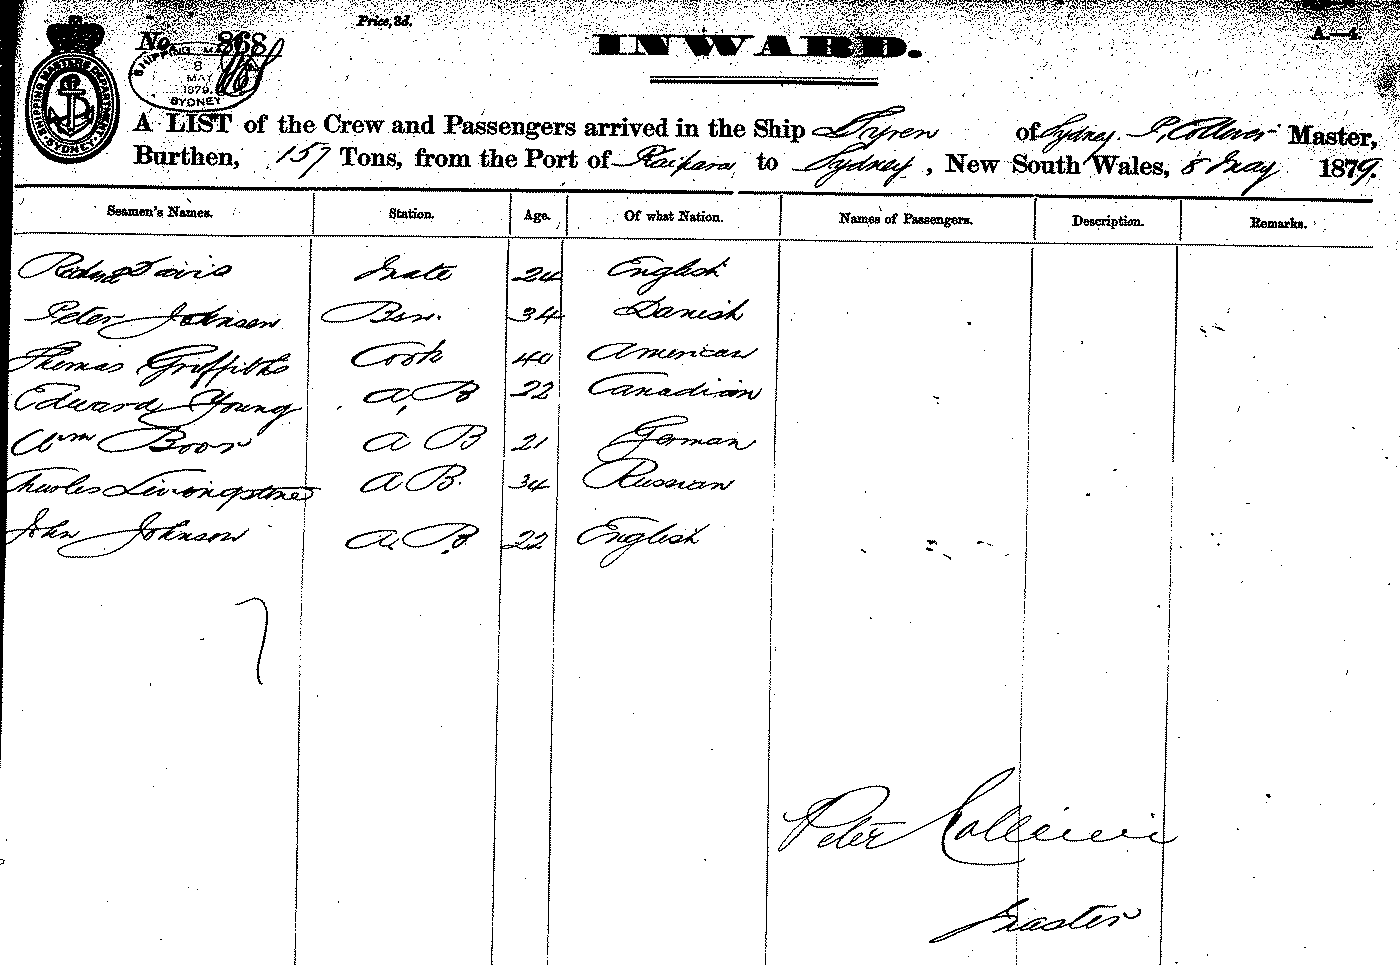 Price, 3d.
A.—4.
No. 868
INWARD.
SHIPPING MASTERS DEPARTMENT
SYDNEY
8
MAY
1879
SYDNEY
A LIST of the Crew and Passengers arrived in the Ship of Sydney, P. Master,
Burthen, 157 Tons, from the Port of Kaipara to Sydney, New South Wales, 8 May 1879.
Seamen's Names. Station. Age. Of what Nation. Names of Passengers. Description. Remarks.
Davis Mate 24 English
Peter Johnson Bsn. 34 Danish
Thomas Griffiths Cook 40 American
Edward Young A, B 22 Canadian
Wm Boor A B 21 German
Charles Livingstone A B. 34 Russian
John Johnson A. B. 22 English
Peter
Master